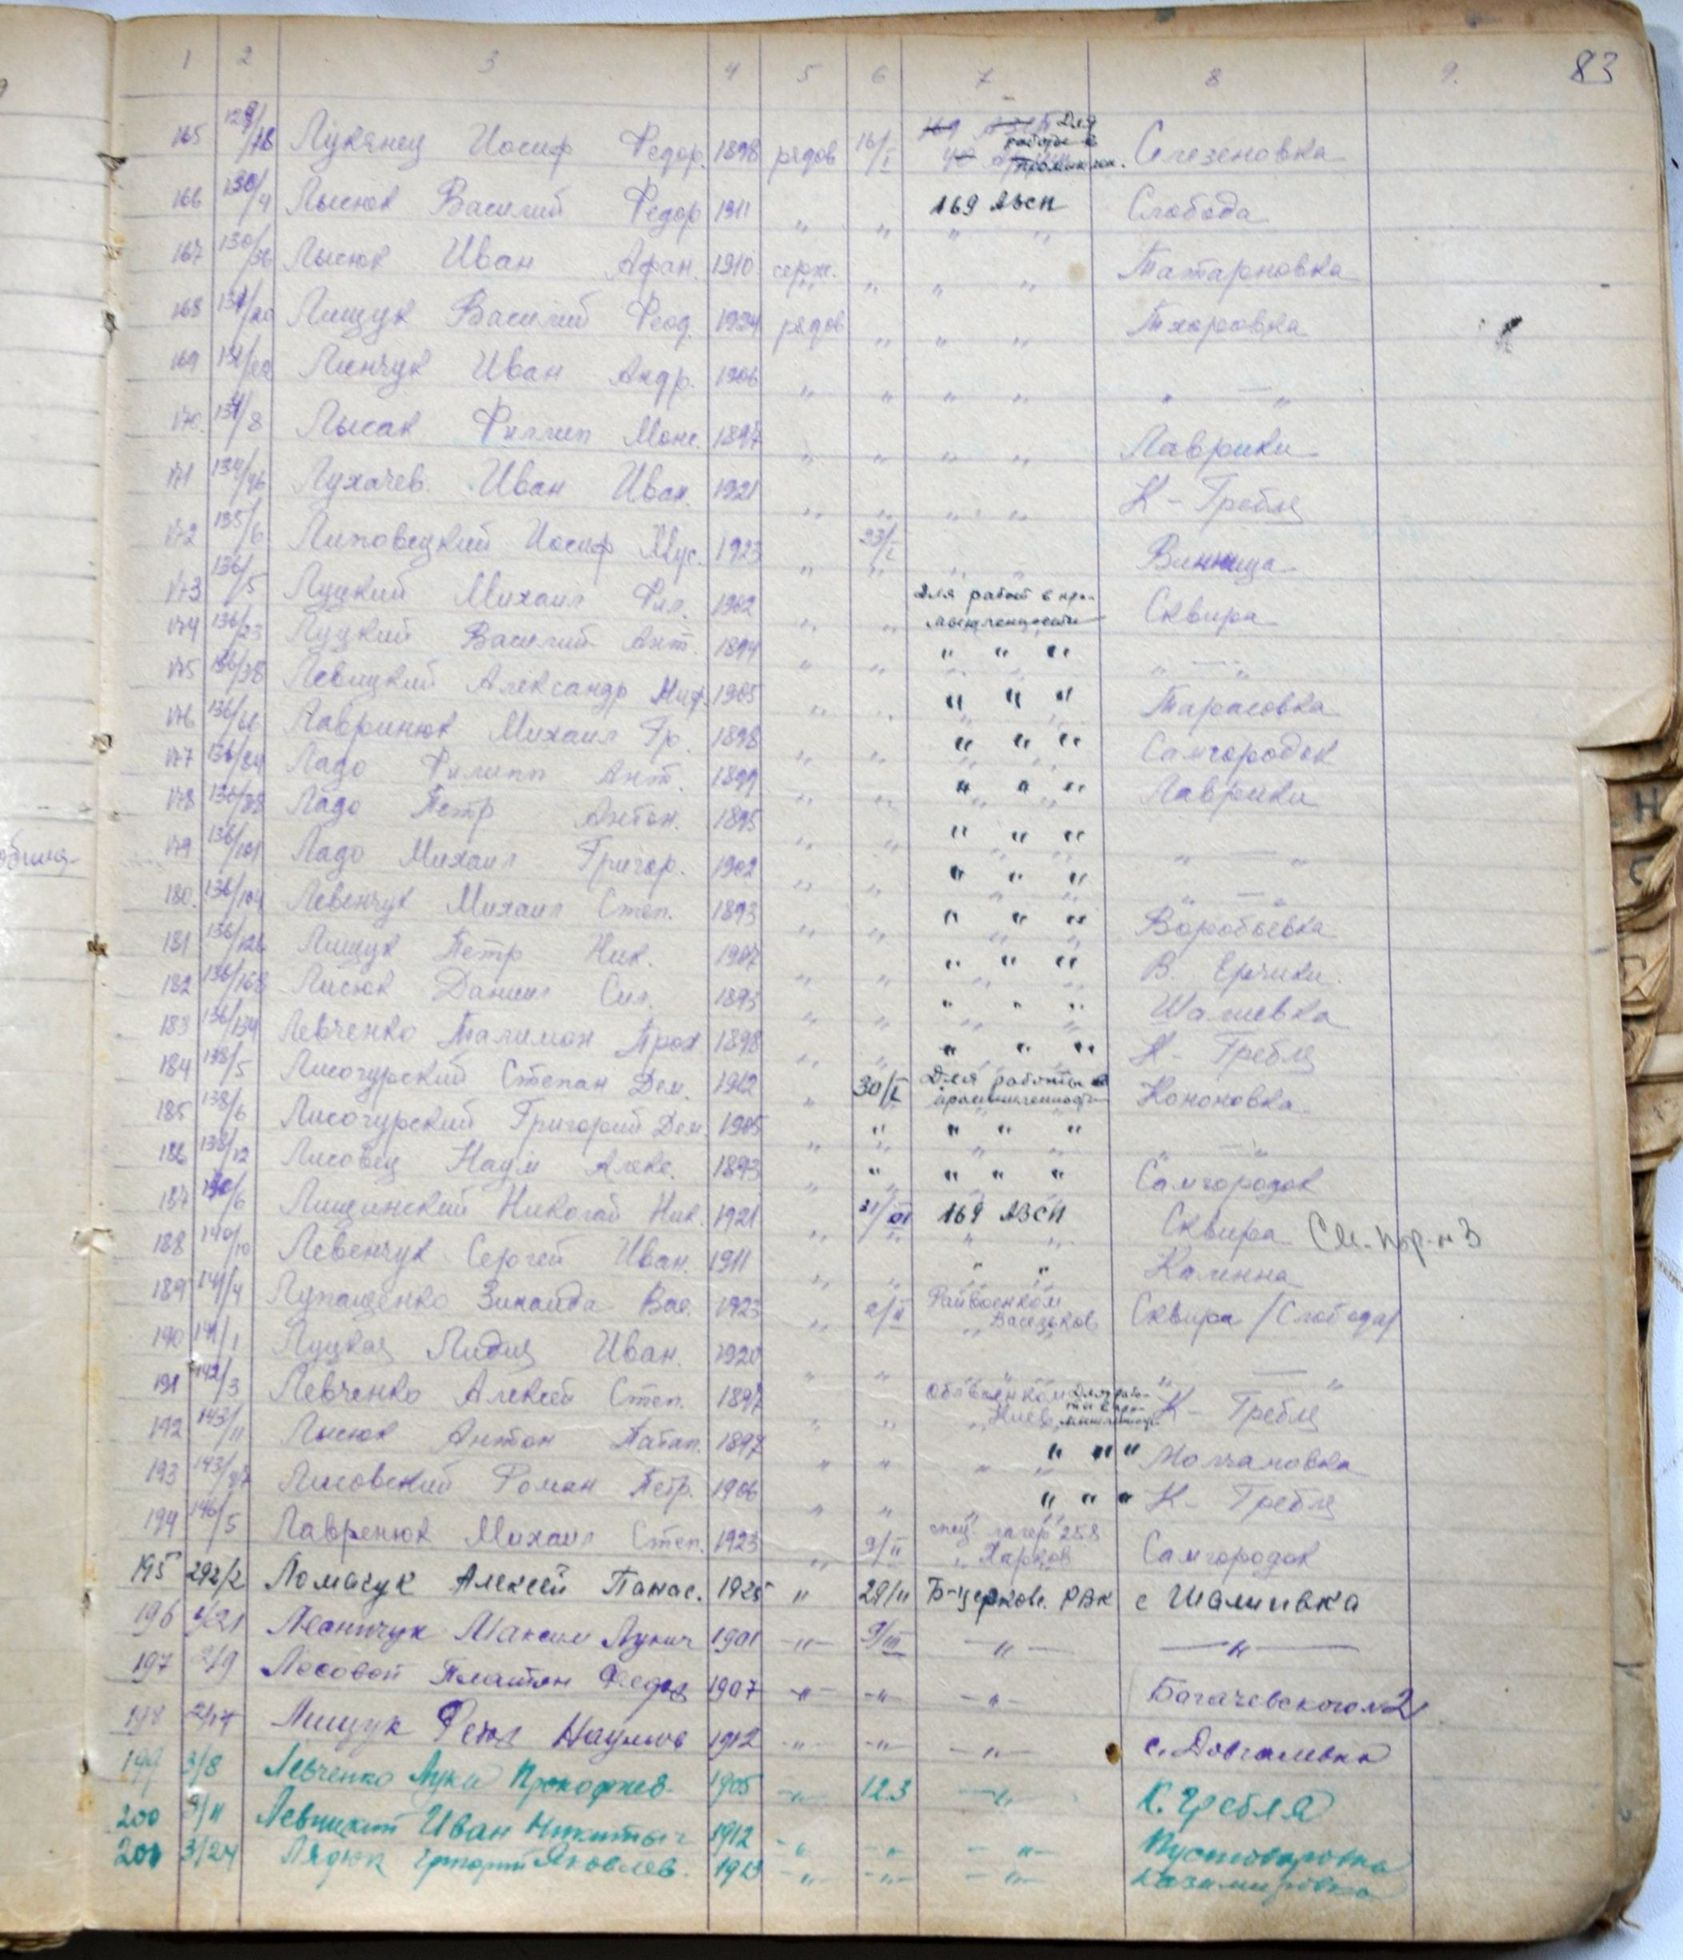 1 2 3 4 5 6 7 8 9. 83
165 129/78 Лукянец Иосиф Федор. 1898 рядов 16/I Для работы в промышлен. Селезеновка
166 130/4 Лысюк Василий Федор 1911 " " 169 АЗСП Слобода
167 130/36 Лысюк Иван Афан. 1910 серж. " " " Татарновка
168 131/20 Лищук Василий Феод. 1924 рядов " " " Тхоровка
169 Линчук Иван Андр. 1906 " " " " " — "
170. 134/8 Лысак Филлип Моис. 1897 " " " " Лаврики
171 134/96 Лухачев Иван Иван. 1921 " " " " К - Гребля
172 135/6 Липовецкий Иосиф 1923 " 23/I " " Винница
173 136/5 Луцкий Михаил Фил. 1902 " " Для работ в про-мышленности Сквира
174 136/23 Луцкий Василий Ант. 1894 " " " " " " — "
175 136/38 Левицкий Александр Ниф. 1905 " " " " " Тарасовка
176 136/66 Лавринюк Михаил Гр. 1898 " " " " " Самгородок
177 136/84 Ладо Филипп Ант. 1899 " " " " " Лаврики
178 136/88 Ладо Петр Антон. 1895 " " " " " " — "
179 136/101 Ладо Михаил Григор. 1902 " " " " " " — "
180. 136/104 Левенчук Михаил Степ. 1893 " " " " " Воробьевка
181 136/126 Лищук Петр Ник. 1907 " " " " " В. Ерчики.
182 136/168 Лисюк Даниил Сил. 1893 " " " " " Шалиевка
183 136/174 Левченко Талимон Прох 1898 " " " " " К - Гребля
184 138/5 Лисогурский Степан Дем. 1912 " 30/I Для работы в промышленности Кононовка
185 138/6 Лисогурский Григорий Дем. 1905 " " " " " " — "
186 138/12 Лисовец Наум Алекс. 1893 " " " " " Самгородок
187 Лищинский Николай Ник. 1921 " 31/I 169 АЗСП Сквира См. пор. н 3
188 140/10 Левенчук Сергей Иван. 1911 " " " " Калинна
189 141/4 Лупащенко Зинаида Вас. 1923 " 2/II Райвоенком Васильков Сквира /Слобода/
190 141/1 Луцкая Лидия Иван. 1920 " " " " " — "
191 142/3 Левченко Алексей Степ. 1897 " " Облвоенком Киев Для рабо-ты в про-мышленнос. К - Гребля
192 143/11 Лысюк Антон Патап. 1897 " " " " " " " Молчановка
193 143/97 Лисовский Роман Петр. 1906 " " " " " К - Гребля
194 146/5 Лавренюк Михаил Степ. 1923 " 9/II спец лагерь 258 " Харков Самгородок
195 292/2 Ломачук Алексей Панас. 1925 " 29/II Б-церковс. РВК с Шалиивка
196 2/21 Лесничук Максим Лукич 1901 —"— 9/III —"— —"—
197 2/9 Лесовой Платон Федор 1907 —"— —"— —"— Багачевского №21
198 Лищук Наумов 1912 —"— —"— —"— с. Довгалевка
199 3/8 Левченко Лука Прокофиев. 1905 —"— 12.3 —"— К. Гребля
200 3/11 Левицкий Иван Никитыч 1912 —"— —"— —"— Пустоваровка
201 3/24 Лядюк Григорий Яковлев. 1913 —"— —"— —"— Казимировка